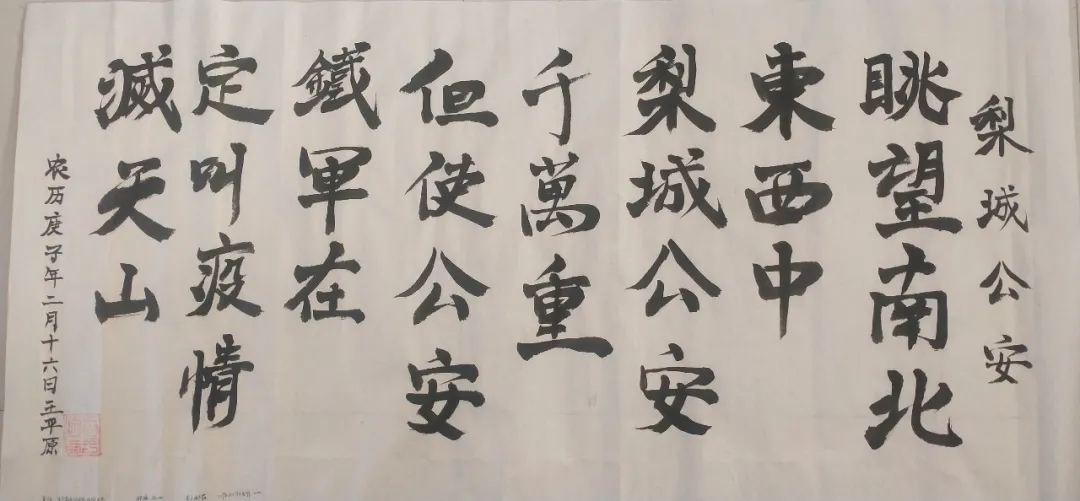 梨城公安
眺望南北
東西中
梨城公安
千萬重
但使公安
鐵軍在
定叫疫情
滅天山
农历庚子年二月十六日王平原